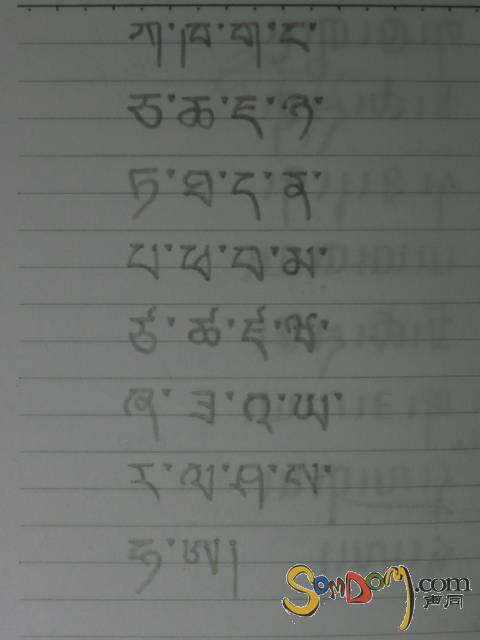 ཀ་ཁ་ག་ང་
ཅ་ཆ་ཇ་ཉ་
ཏ་ཐ་ད་ན་
པ་ཕ་བ་མ་
ཙ་ཚ་ཛ་ཝ་
ཞ་ཟ་འ་ཡ་
ར་ལ་ཤ་ས་
ཧ་ཨ།
SOMDOM.com
声同